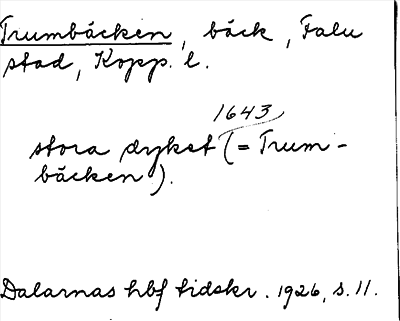 Trumbäcken, bäck, Falu
stad, Kopp. l.
1643
stora dyket (= Trum-
bäcken).
Dalarnas hbf tidskr. 1926, s. 11.